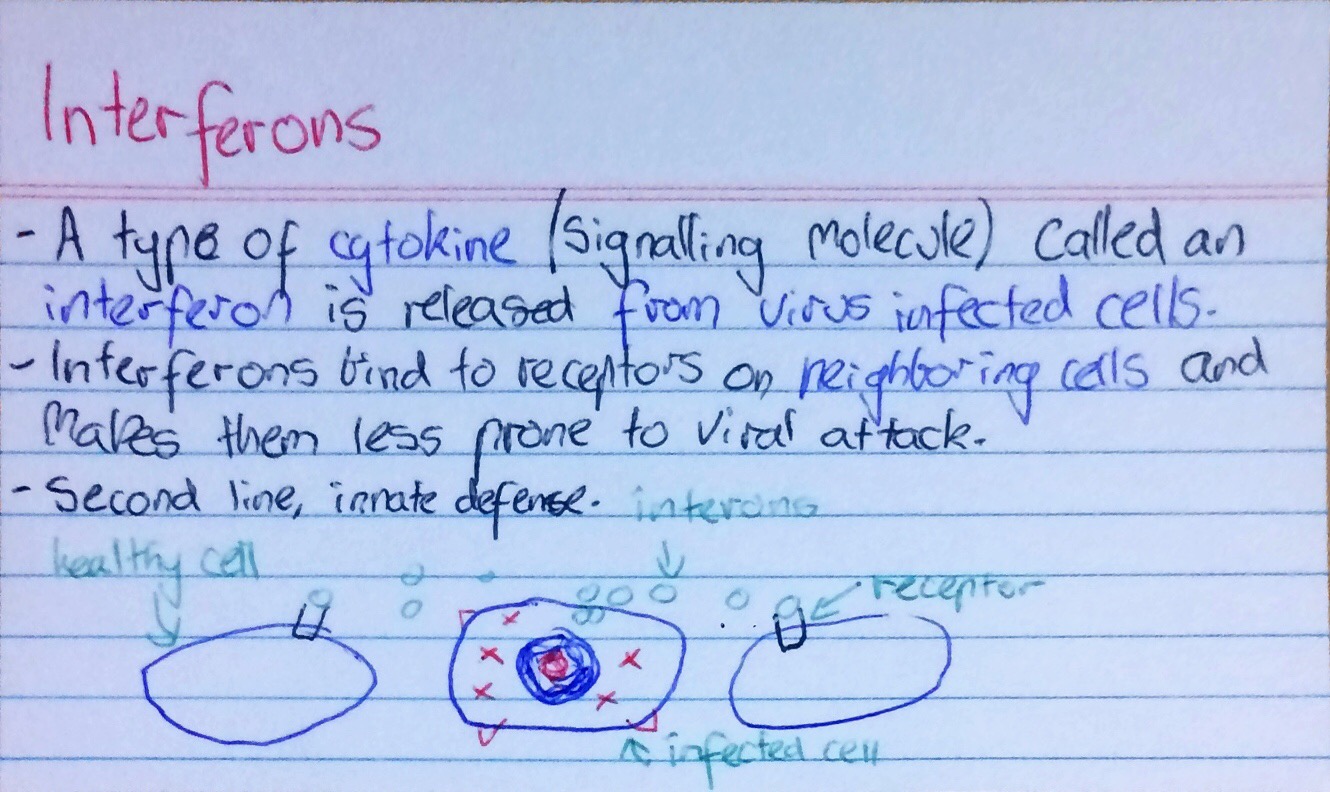 Interferons
- A type of cytokine (Signalling molecule) called an
interferon is released from virus infected cells.
- Interferons bind to receptors on neighboring cells and
Makes them less prone to viral attack.
- Second line, innate defense.
interons
healthy cell
receptor
infected cell